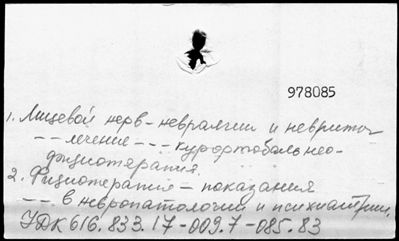 978085
1. Лицевой нерв - невралгии и невриты
- - лечение - - - курортобальнео-
физиотерапия.
2. Физиотерапия - показания
- - в невропатологии и психиатрии.
УДК 616.833.17-009.7-085.83